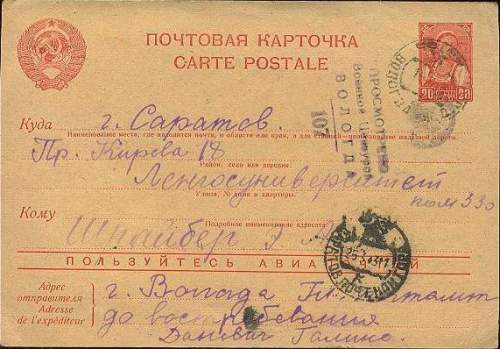 ПОЧТОВАЯ КАРТОЧКА
CARTE POSTALE
20 20
ПРОСМОТРЕНО
Военной Цензурой
ВОЛОГДА
107
Куда г. Саратов.
Наименование места, где находится почта, и области или края, а для станций
Пр. Кирова 18
Район, село или деревня
Ленгосуниверситет
Улица, № дома и квартиры.
ком 330
Кому Шпайбер
Подробное наименование адресата
ПОЛЬЗУЙТЕСЬ
Адрес
отправителя
Adresse
de l'expéditeur
г. Вологда
до востребования
Галине.